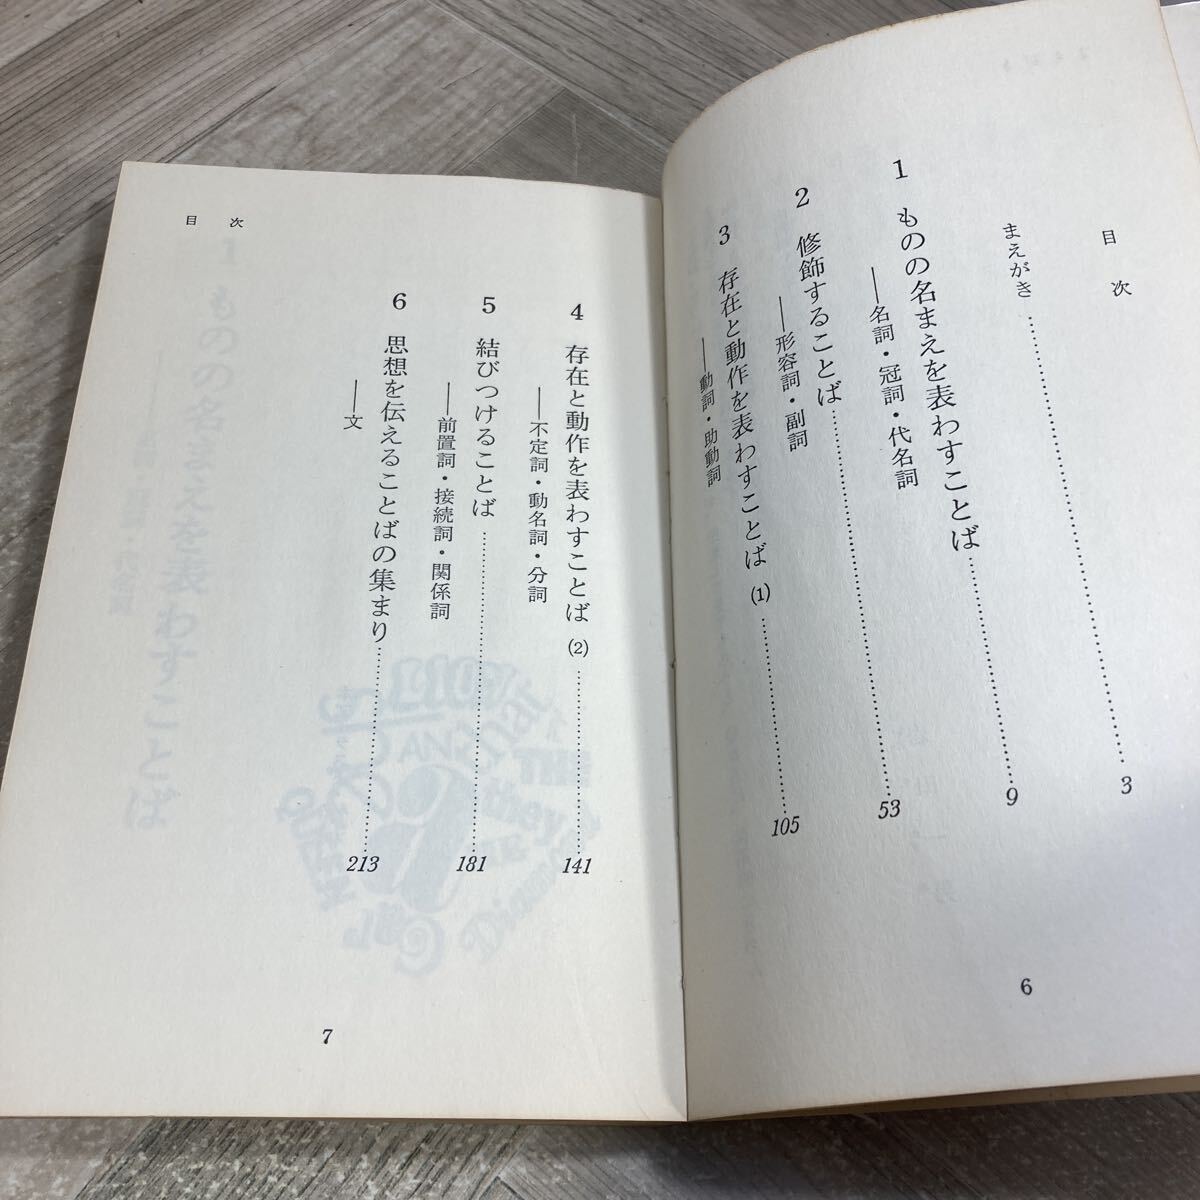 目次
まえがき……3
1 ものの名まえを表わすことば……9
——名詞・冠詞・代名詞
2 修飾することば……53
——形容詞・副詞
3 存在と動作を表わすことば (1)……105
——動詞・助動詞
6
目次
4 存在と動作を表わすことば (2)……141
——不定詞・動名詞・分詞
5 結びつけることば……181
——前置詞・接続詞・関係詞
6 思想を伝えることばの集まり……213
——文
7
1 ものの名まえを表わすことば